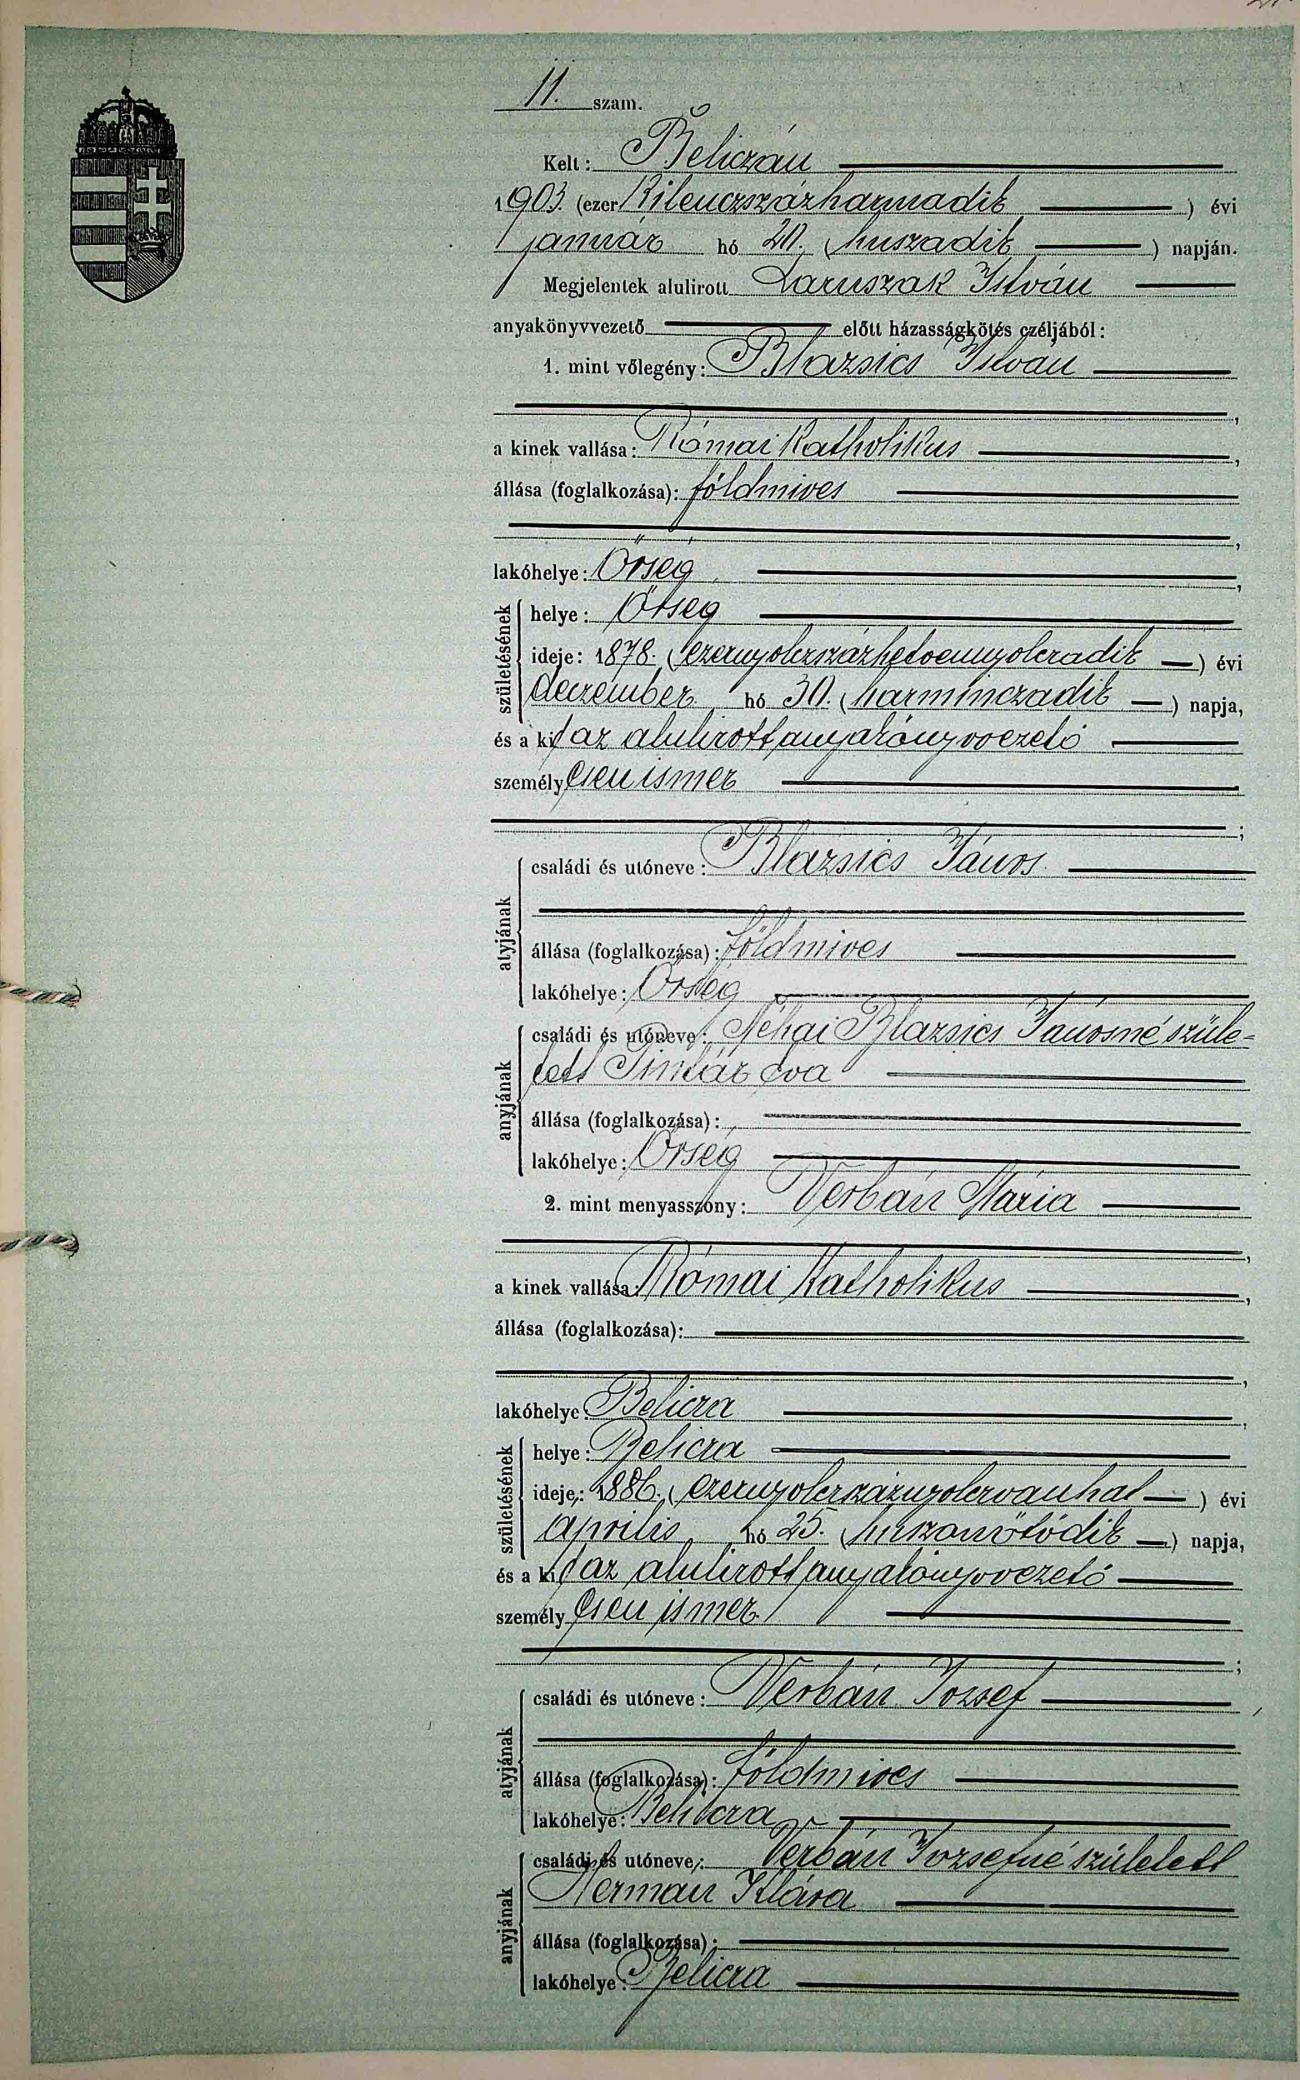 11. szam.
Kelt: Beliczán
1903. (ezer Kilenczszázharmadik) évi
január hó 20. (huszadik) napján.
Megjelentek alulirott Laruszak István
anyakönyvvezető előtt házasságkötés czéljából:
1. mint vőlegény: Blazsics István
a kinek vallása: Római Katholikus
állása (foglalkozása): földmives
lakóhelye: Őrség
születésének
helye: Őrség
ideje: 1878. (ezernyolczszázhetvennyolczadik) évi
deczember hó 30. (harminczadik) napja,
és a kit az alulirott anyakönyvvezető
személyesen ismer
;
atyjának
családi és utóneve: Blazsics János
állása (foglalkozása): földmives
lakóhelye: Őrség
anyjának
családi és utóneve: Néhai Blazsics Jánosné szüle-
tett Pintár Éva
állása (foglalkozása):
lakóhelye: Őrség
2. mint menyasszony: Verbán Mária
a kinek vallása: Római Katholikus
állása (foglalkozása):
lakóhelye: Belicza
születésének
helye: Belicza
ideje: 1886. (ezernyolczszáznyolczvanhat) évi
április hó 25. (huszonötödik) napja,
és a kit az alulirott anyakönyvvezető
személyesen ismer
;
atyjának
családi és utóneve: Verbán József
állása (foglalkozása): földmives
lakóhelye: Belicza
anyjának
családi és utóneve: Verbán Józsefné született
Herman Klára
állása (foglalkozása):
lakóhelye: Belicza